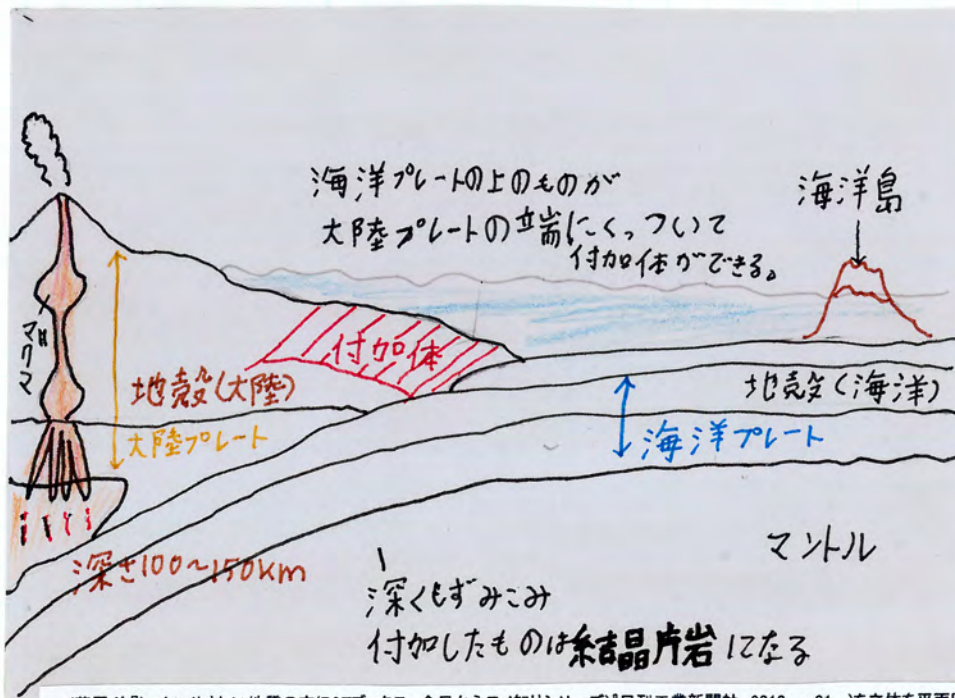 海洋プレートの上のものが
大陸プレートの端にくっついて
付加体ができる。
海洋島
マグマ
付加体
地殻(大陸)
大陸プレート
地殻(海洋)
海洋プレート
深さ100~150km
マントル
深くもずみこみ
付加したものは結晶片岩になる